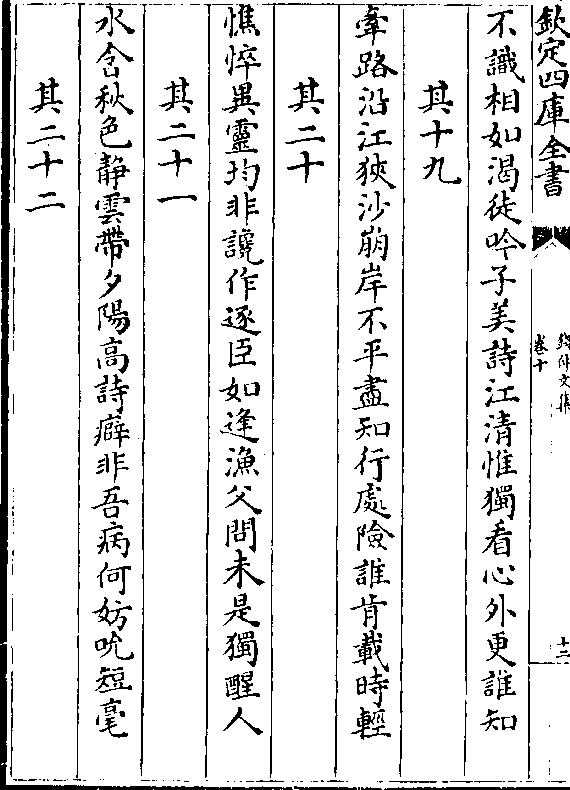 欽定四庫全書
錢仲文集
卷十
十二
不識相如渴徒吟子美詩江清惟獨看心外更誰知
其十九
牽路沿江狹沙崩岸不平盡知行處險誰肯載時輕
其二十
憔悴異靈均非讒作逐臣如逢漁父問未是獨醒人
其二十一
水含秋色靜雲帶夕陽高詩癖非吾病何妨吮短毫
其二十二